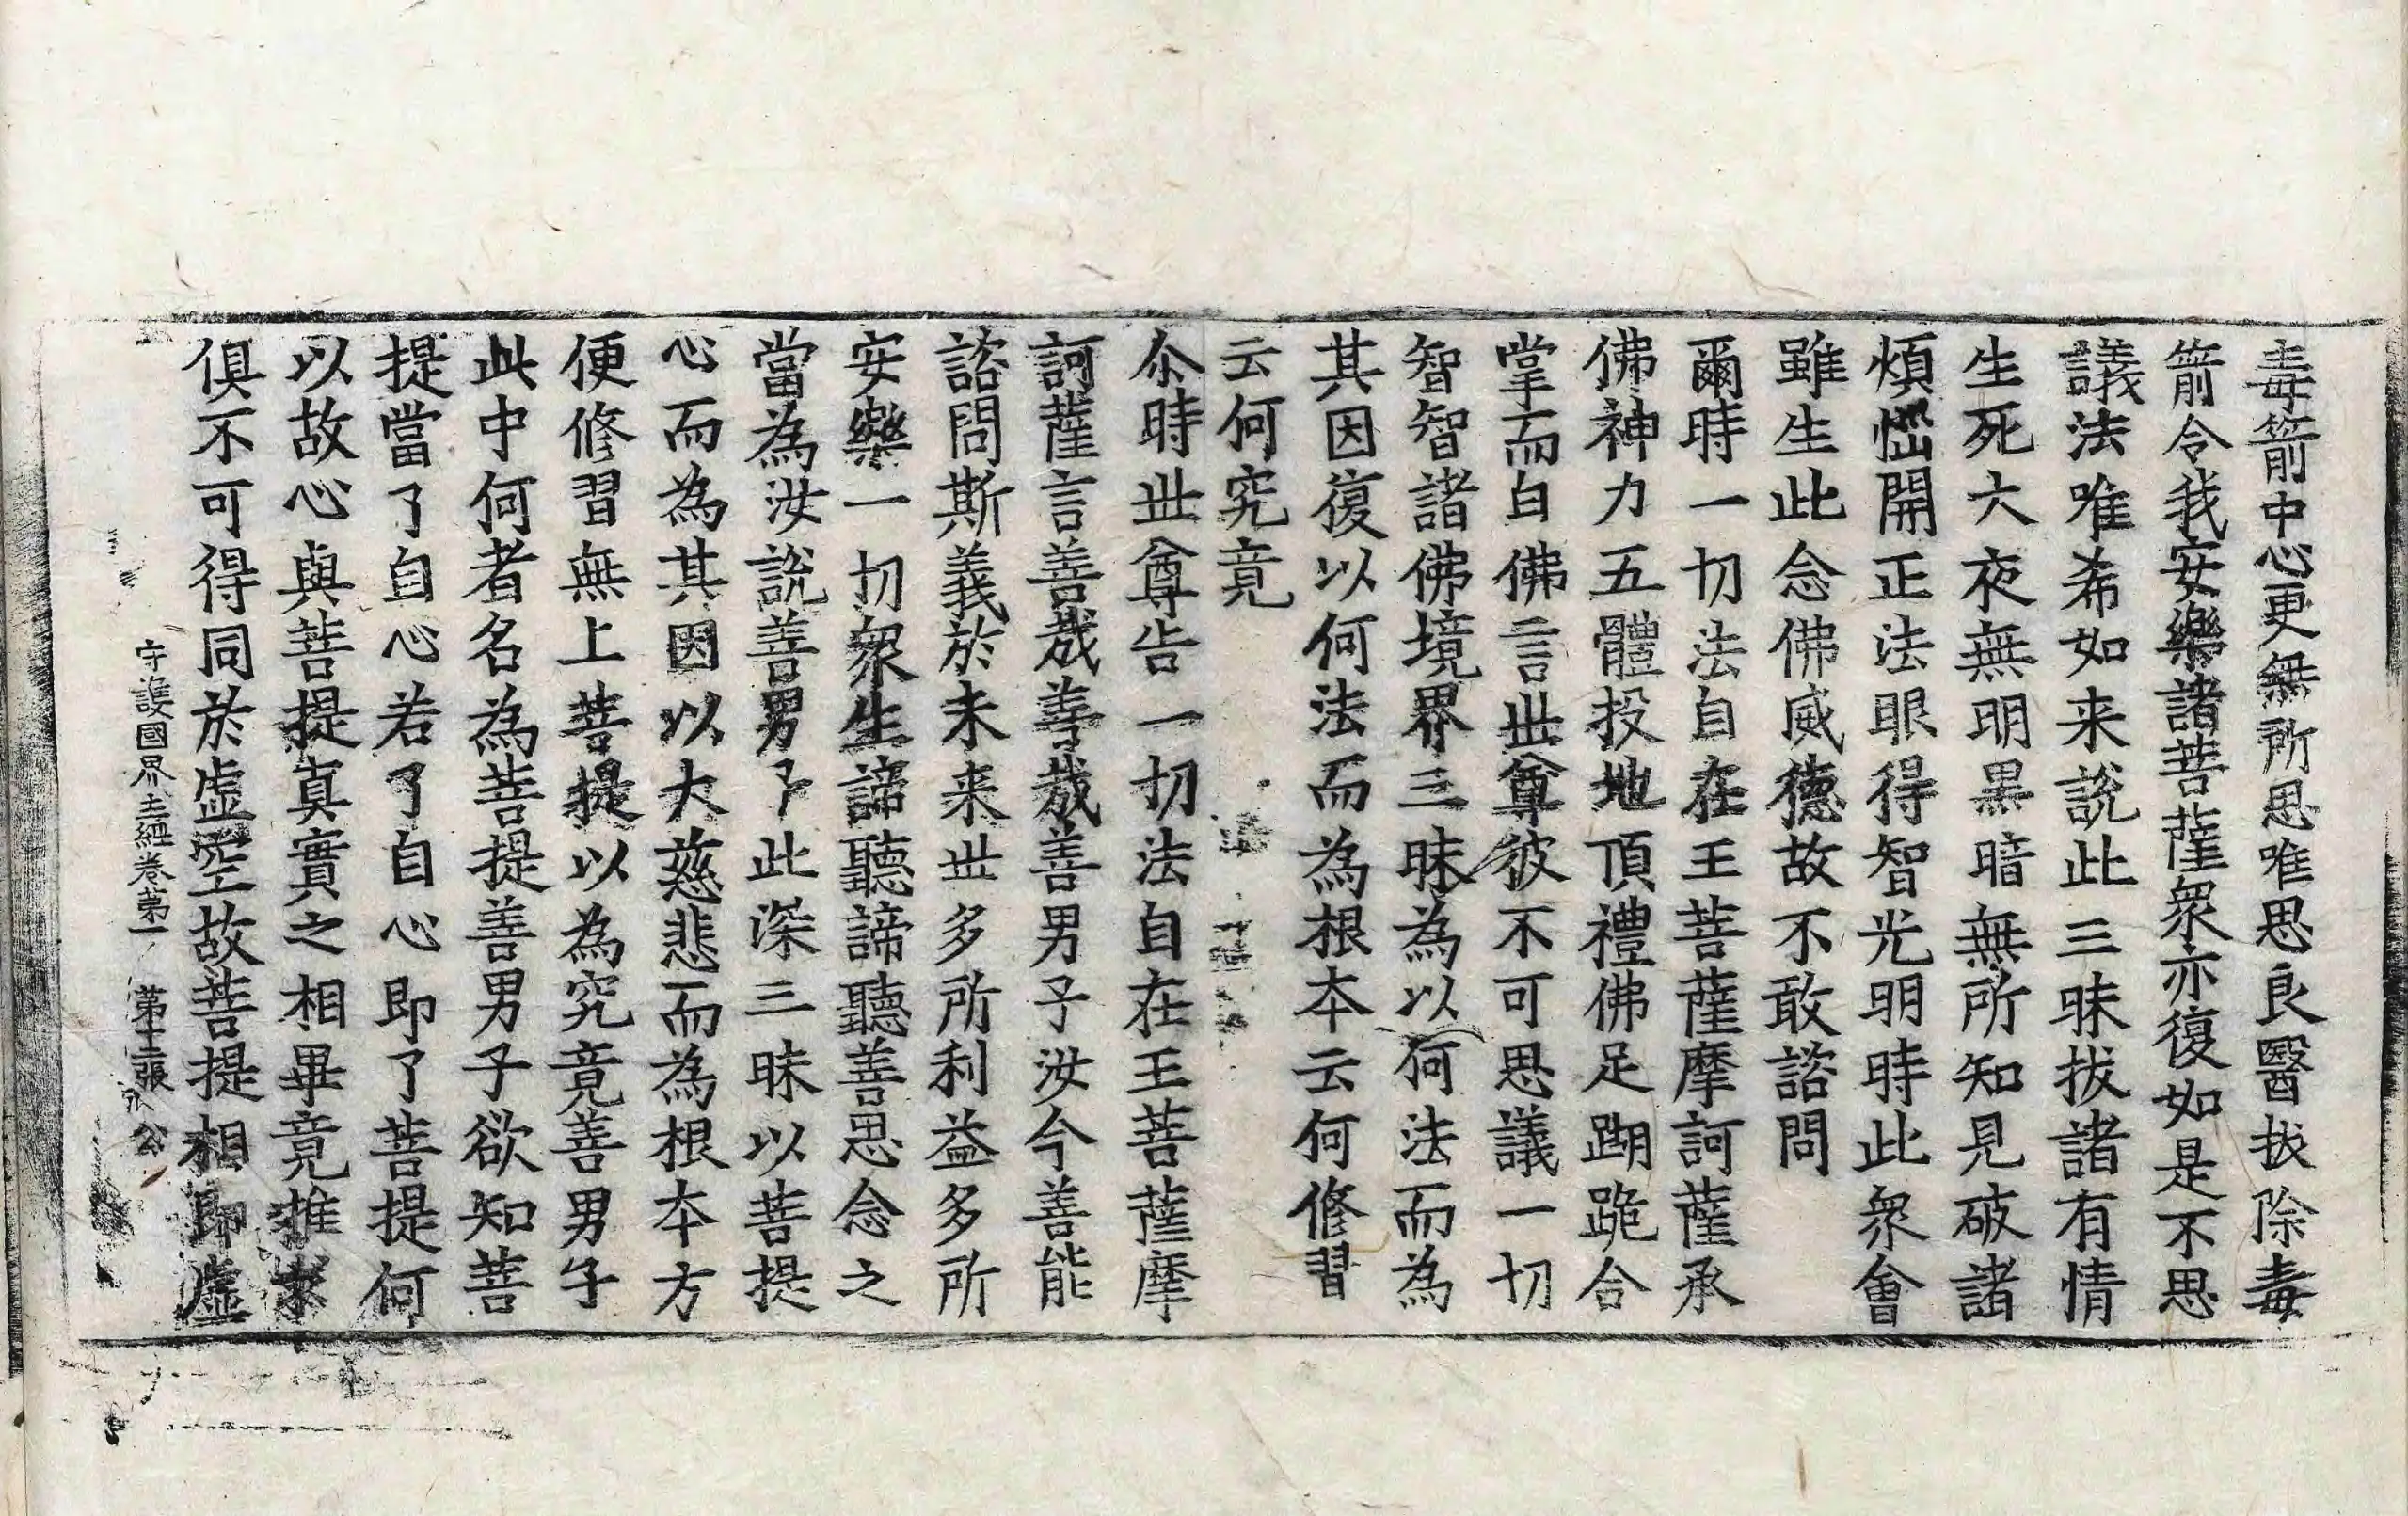 毒箭中心更無所思唯思良醫拔除毒
箭令我安樂諸菩薩衆亦復如是不思
議法唯希如来說此三昧拔諸有情
生死大夜無明黒暗無所知見破諸
煩惱開正法眼得智光明時此衆會
雖生此念佛威德故不敢諮問
爾時一切法自在王菩薩摩訶薩承
佛神力五體投地頂禮佛足踟跪合
掌而白佛言世尊彼不可思議一切
智智諸佛境界三昧為以何法而為
其因復以何法而為根本云何修習
云何究竟
尒時世尊告一切法自在王菩薩摩
訶薩言善哉善哉善男子汝今善能
諮問斯義於未来世多所利益多所
安樂一切衆生諦聽諦聽善思念之
當為汝說善男子此深三昧以菩提
心而為其因以大慈悲而為根本方
便修習無上菩提以為究竟善男子
此中何者名為菩提善男子欲知菩
提當了自心若了自心即了菩提何
以故心與菩提真實之相畢竟推求
俱不可得同於虛空故菩提相即虛
守護國界主經卷第一 第十二張 公